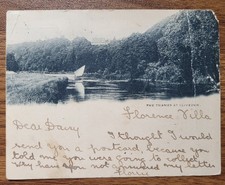 Florence Villa
Dear Daisy
I thought I would
send you a postcard, because you
told me you were going to collect
Why have you not answered my letter
Florrie